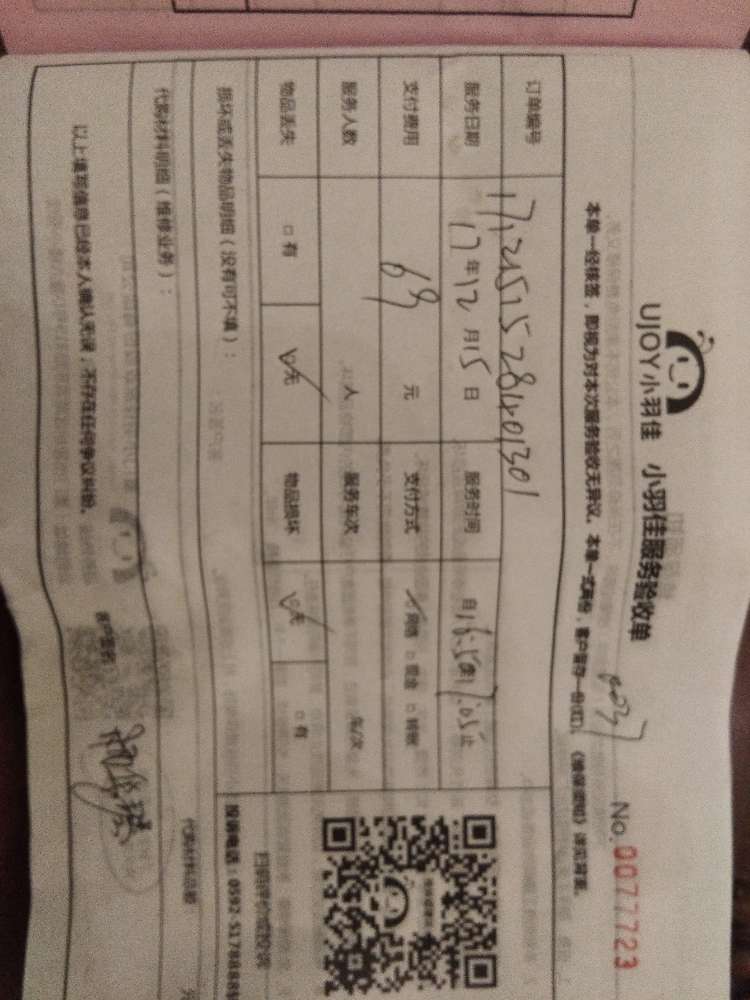 UJOY小羽佳 小羽佳服务验收单 No.0077723
本单一经核签,即视为对本次服务验收无异议。本单一式两份,客户留存一份(红)。
订单编号 1712151528401301
服务日期 17年12月15日 服务时间
支付费用 69元 支付方式 ☑网络 □现金 □转账
服务人数 人 服务车次 车/次
物品丢失 □有 ☑无 物品损坏 ☑无 □有
损坏或丢失物品明细(没有可不填):
代购材料明细(维修业务): 代购材料总额: 元
以上填写信息已经本人确认无误,不存在任何争议纠纷。 客户签名:
扫码评价或投诉
投诉电话:0592-5178888